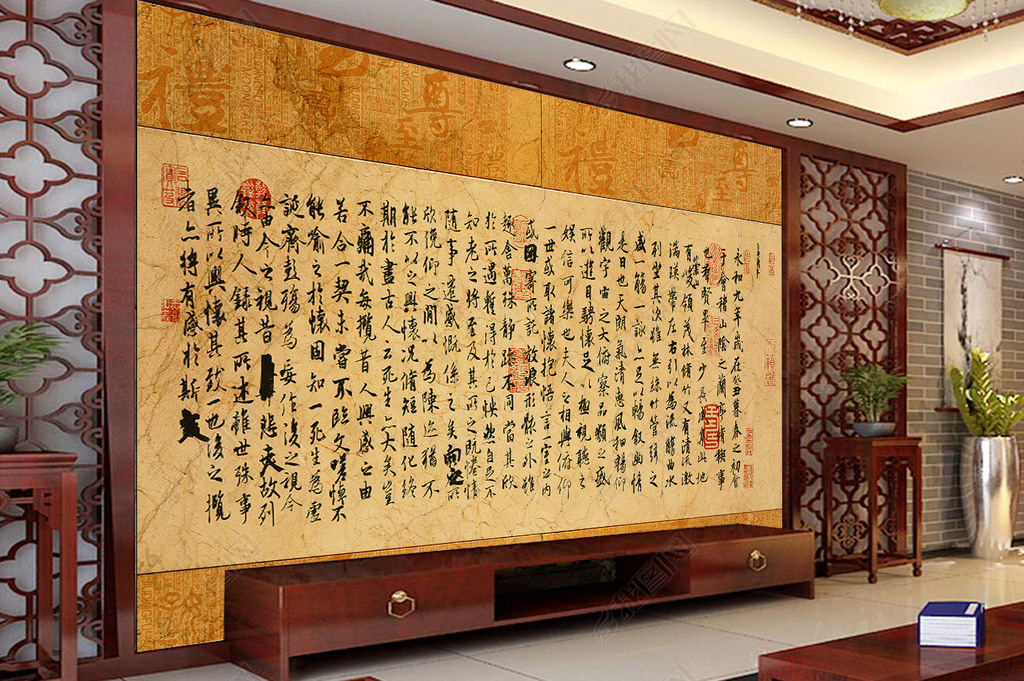 禮
尊
至
禮
尊
至
永和九年歲在癸丑暮春之初會
于會稽山陰之蘭亭脩禊事
也羣賢畢至少長咸集此地
有崇山峻領茂林脩竹又有清流激
湍暎帶左右引以為流觴曲水
列坐其次雖無絲竹管弦之
盛一觴一詠亦足以暢叙幽情
是日也天朗氣清惠風和暢仰
觀宇宙之大俯察品類之盛
所以遊目騁懷足以極視聽之
娛信可樂也夫人之相與俯仰
一世或取諸懷抱悟言一室之內
或因寄所託放浪形骸之外雖
趣舍萬殊靜躁不同當其欣
於所遇暫得於己怏然自足不
知老之將至及其所之既惓情
隨事遷感慨係之矣向之所
欣俛仰之閒以為陳迹猶不
能不以之興懷況脩短隨化終
期於盡古人云死生亦大矣豈
不痛哉每攬昔人興感之由
若合一契未嘗不臨文嗟悼不
能喻之於懷固知一死生為虛
誕齊彭殤為妄作後之視今
亦由今之視昔悲夫故列
敘時人錄其所述雖世殊事
異所以興懷其致一也後之攬
者亦將有感於斯文